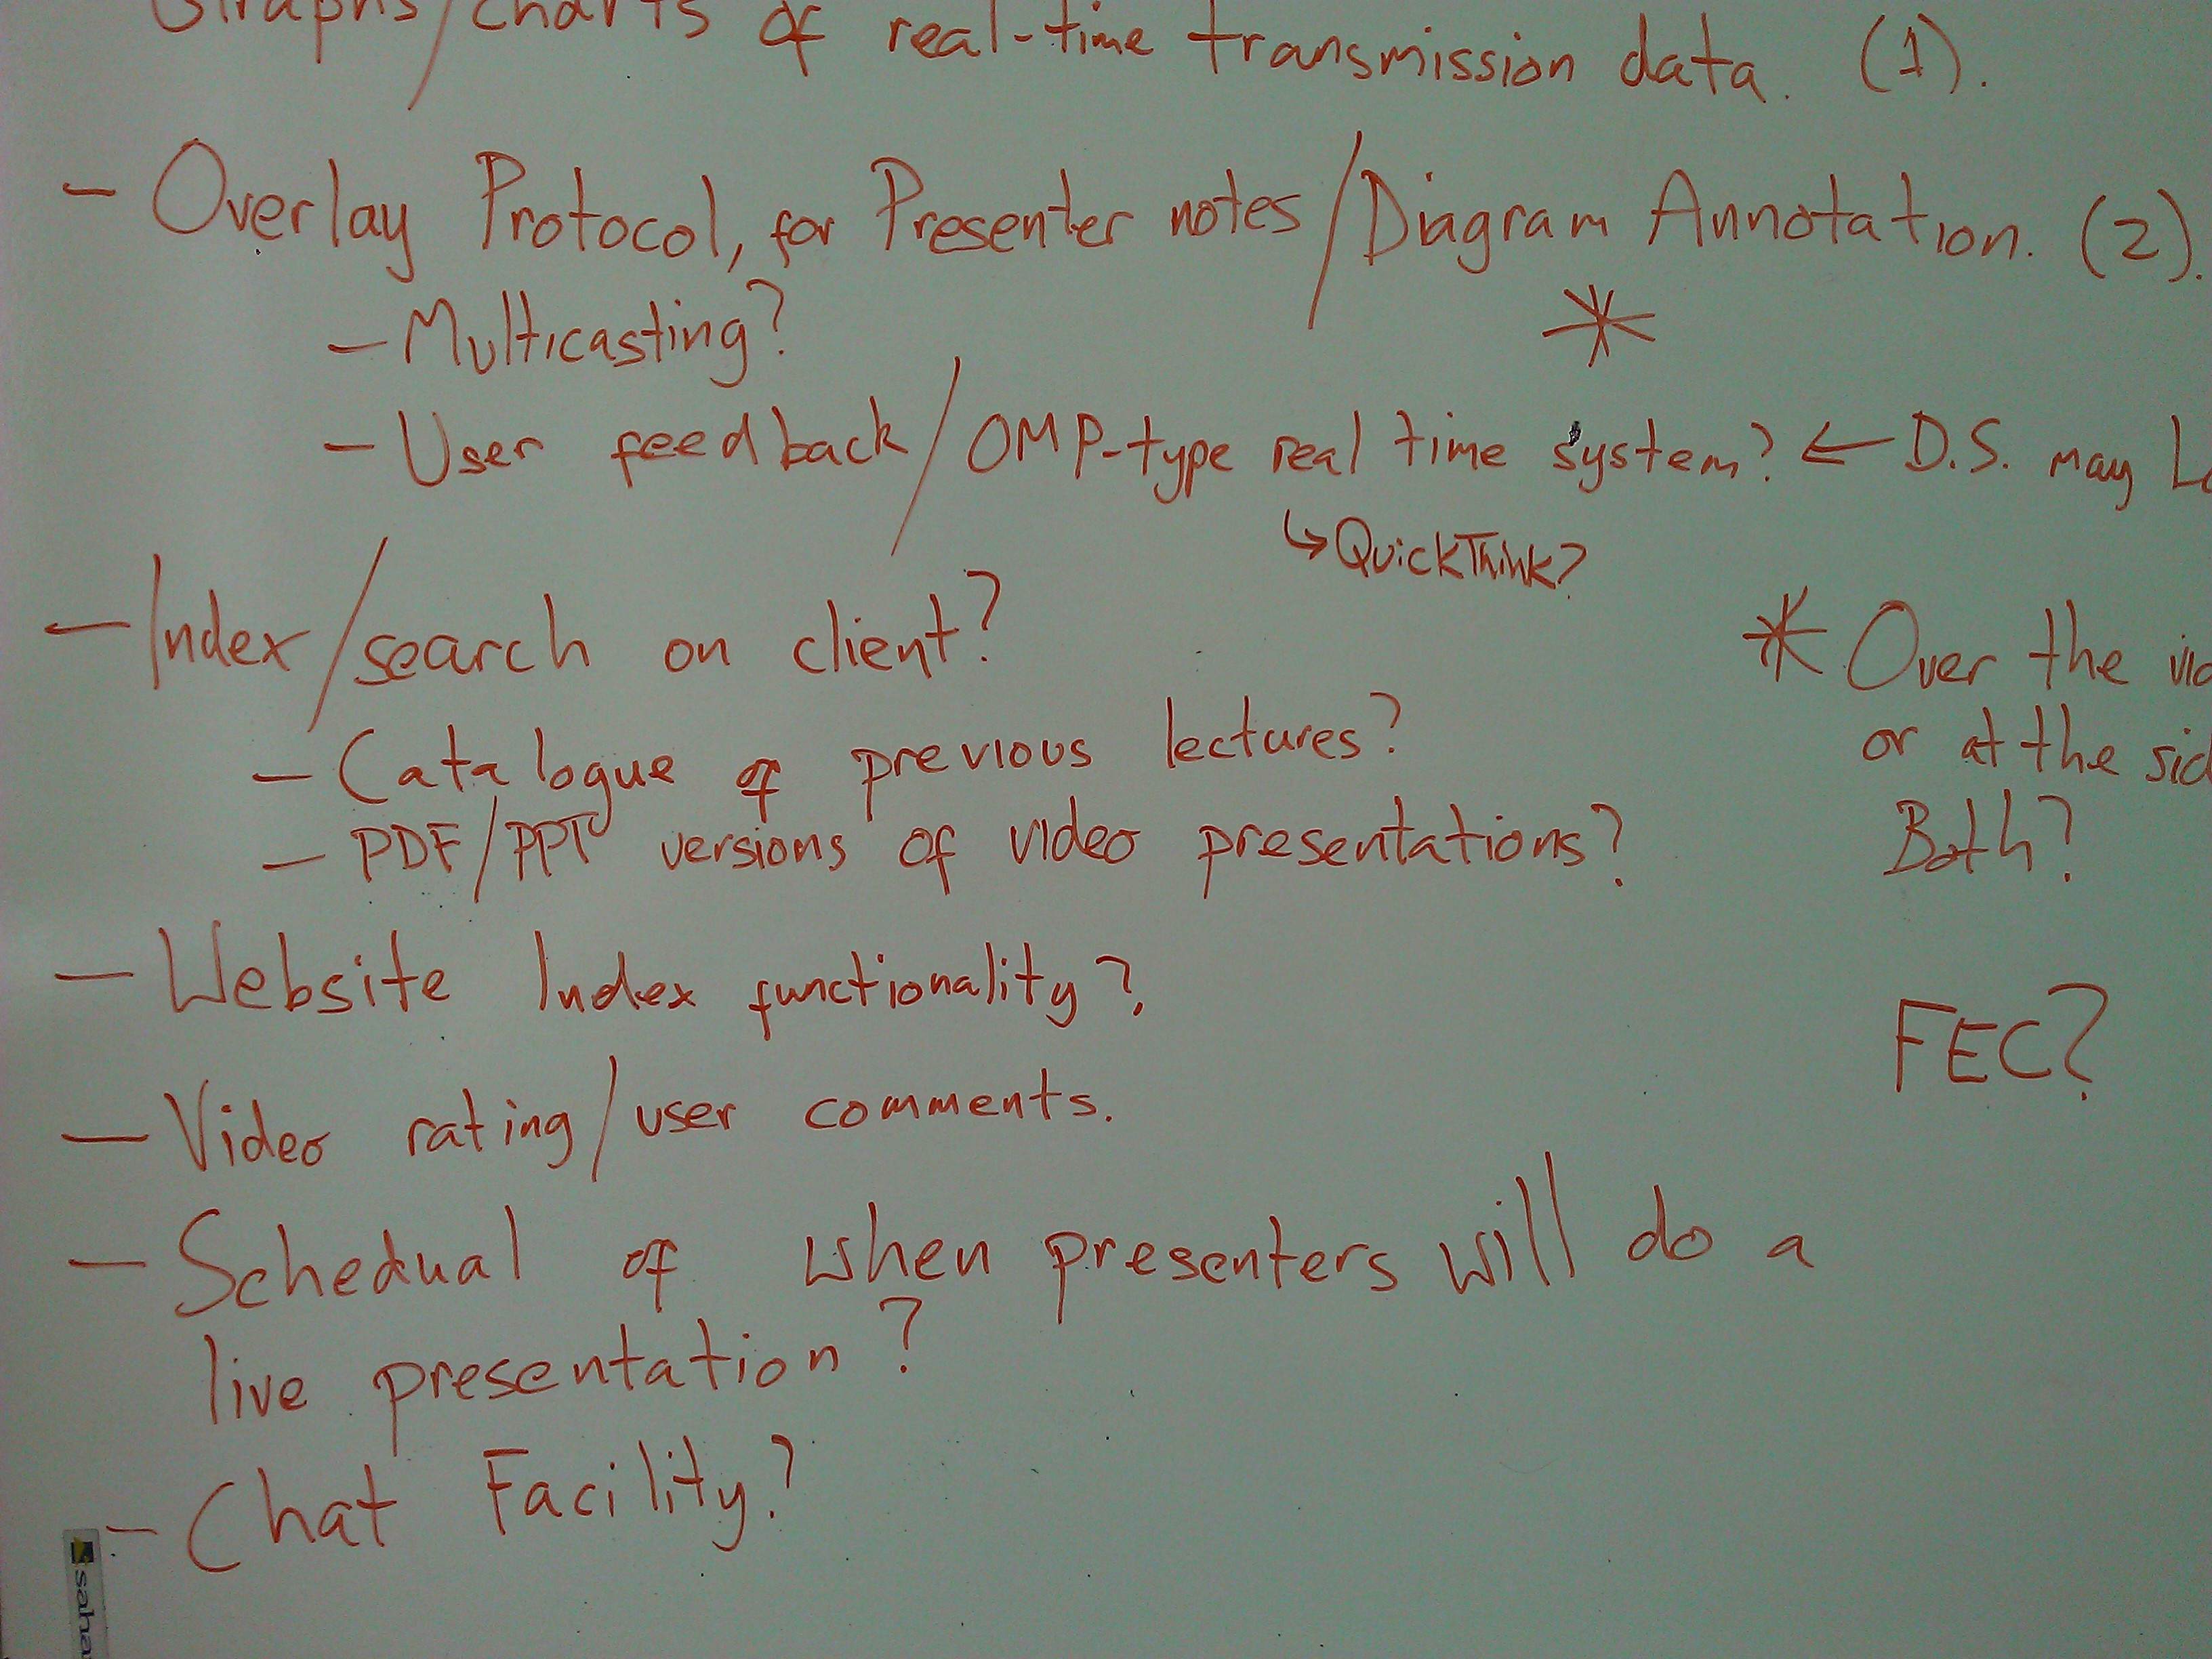 Graphs/charts of real-time transmission data. (1).
- Overlay Protocol, for Presenter notes/Diagram Annotation. (2).
- Multicasting? *
- User feedback/OMP-type real time system? ← D.S. may
↳ QuickThink?
- Index/search on client?
- Catalogue of previous lectures?
- PDF/PPT versions of video presentations?
- Website Index functionality?
- Video rating/user comments.
- Schedual of when presenters will do a
live presentation?
- Chat Facility?
* Over the
or at the
Both?
FEC?